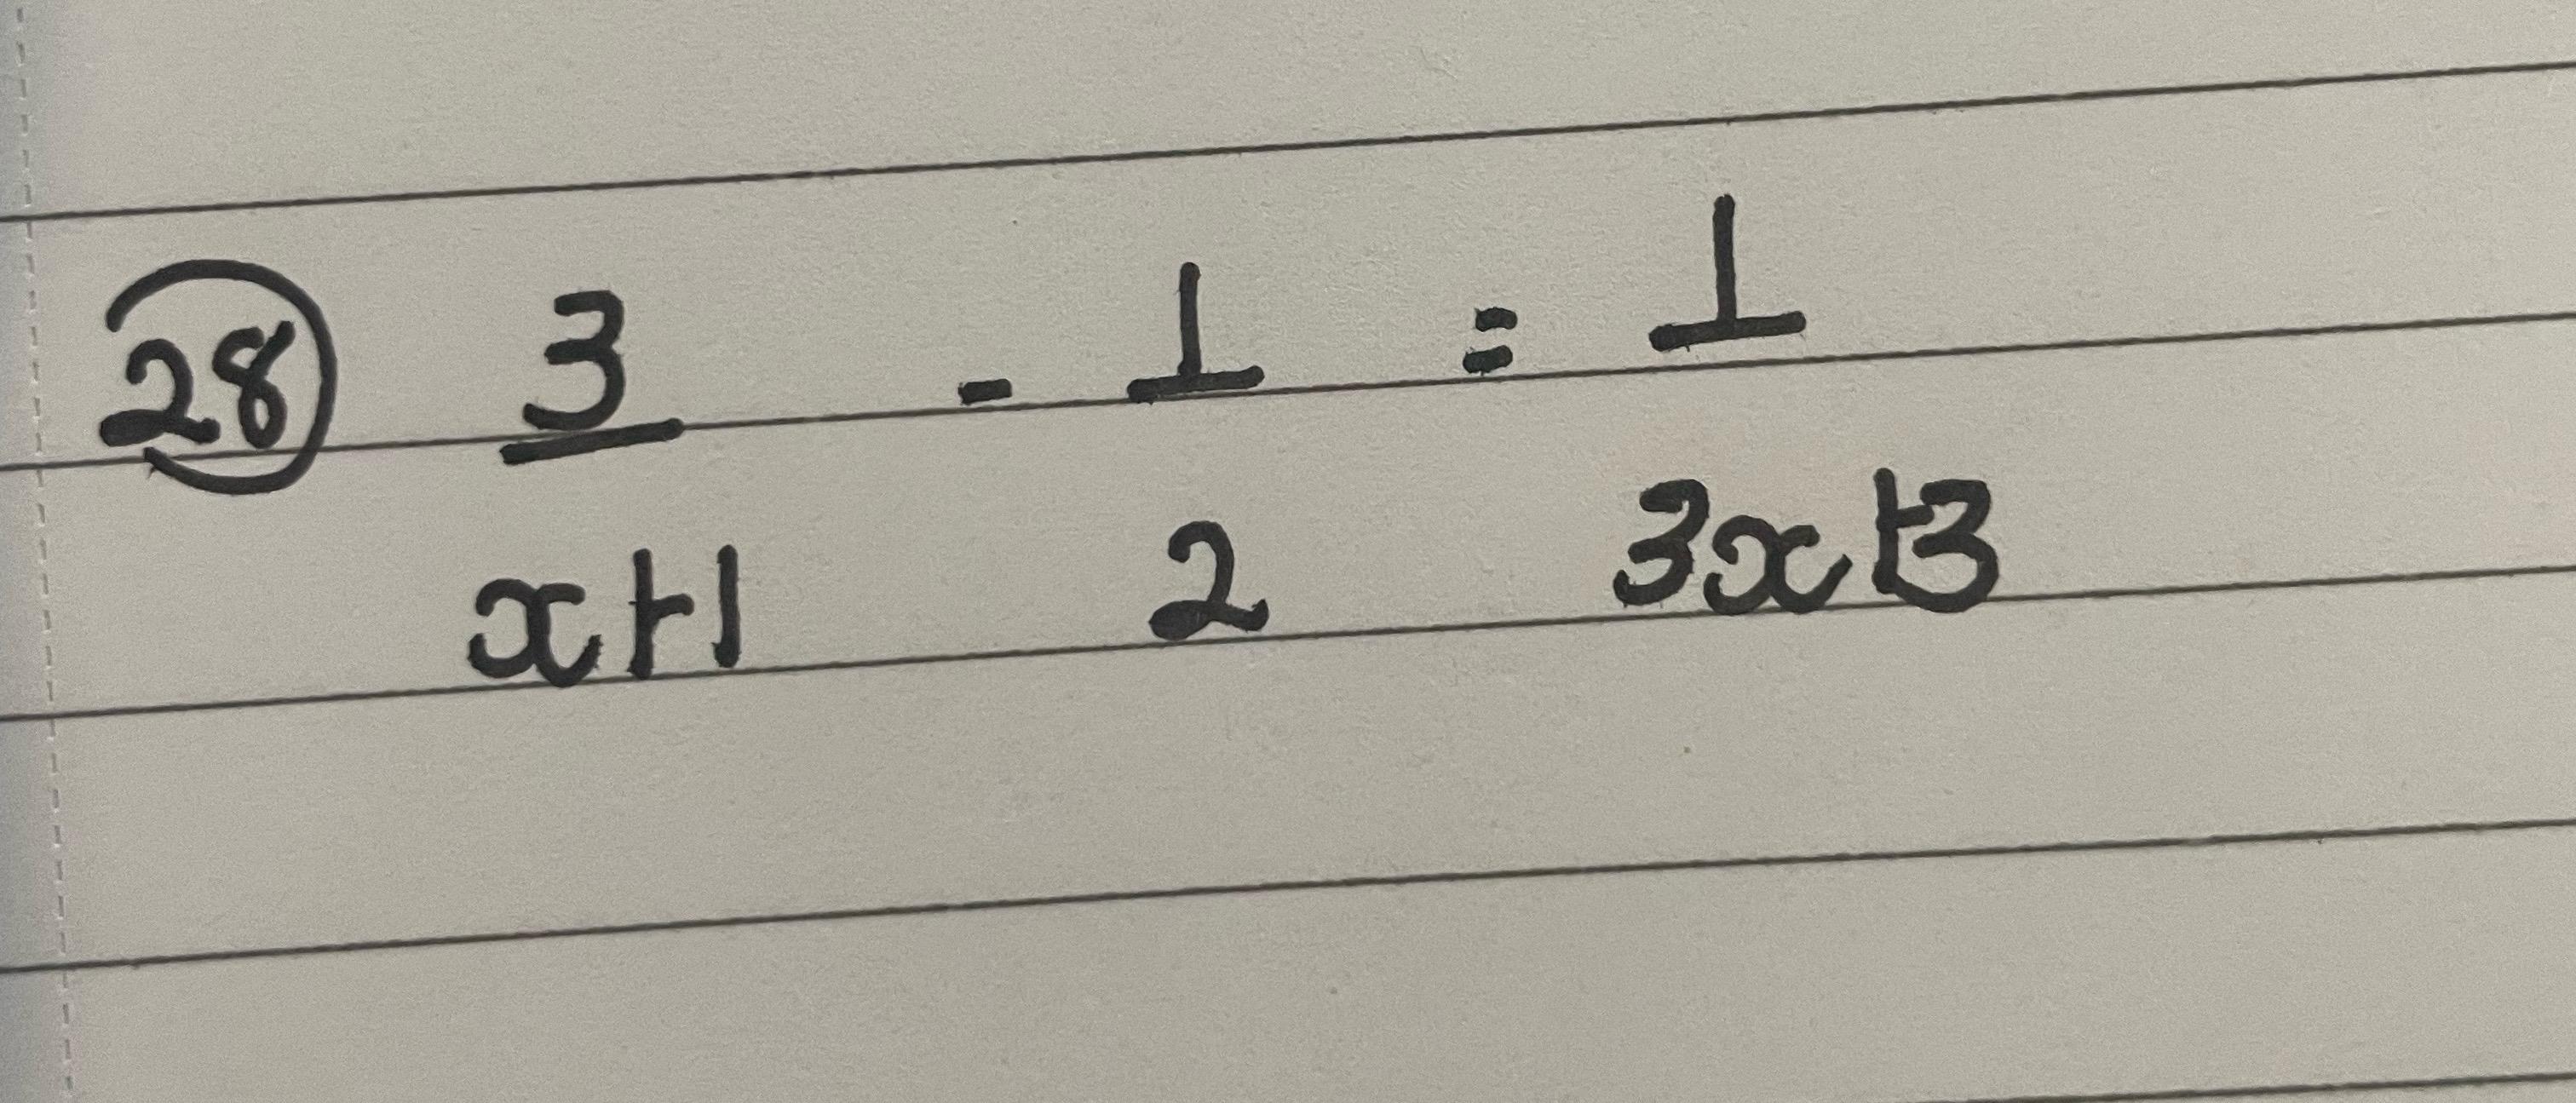 28 3/x+1 - 1/2 = 1/3x+3